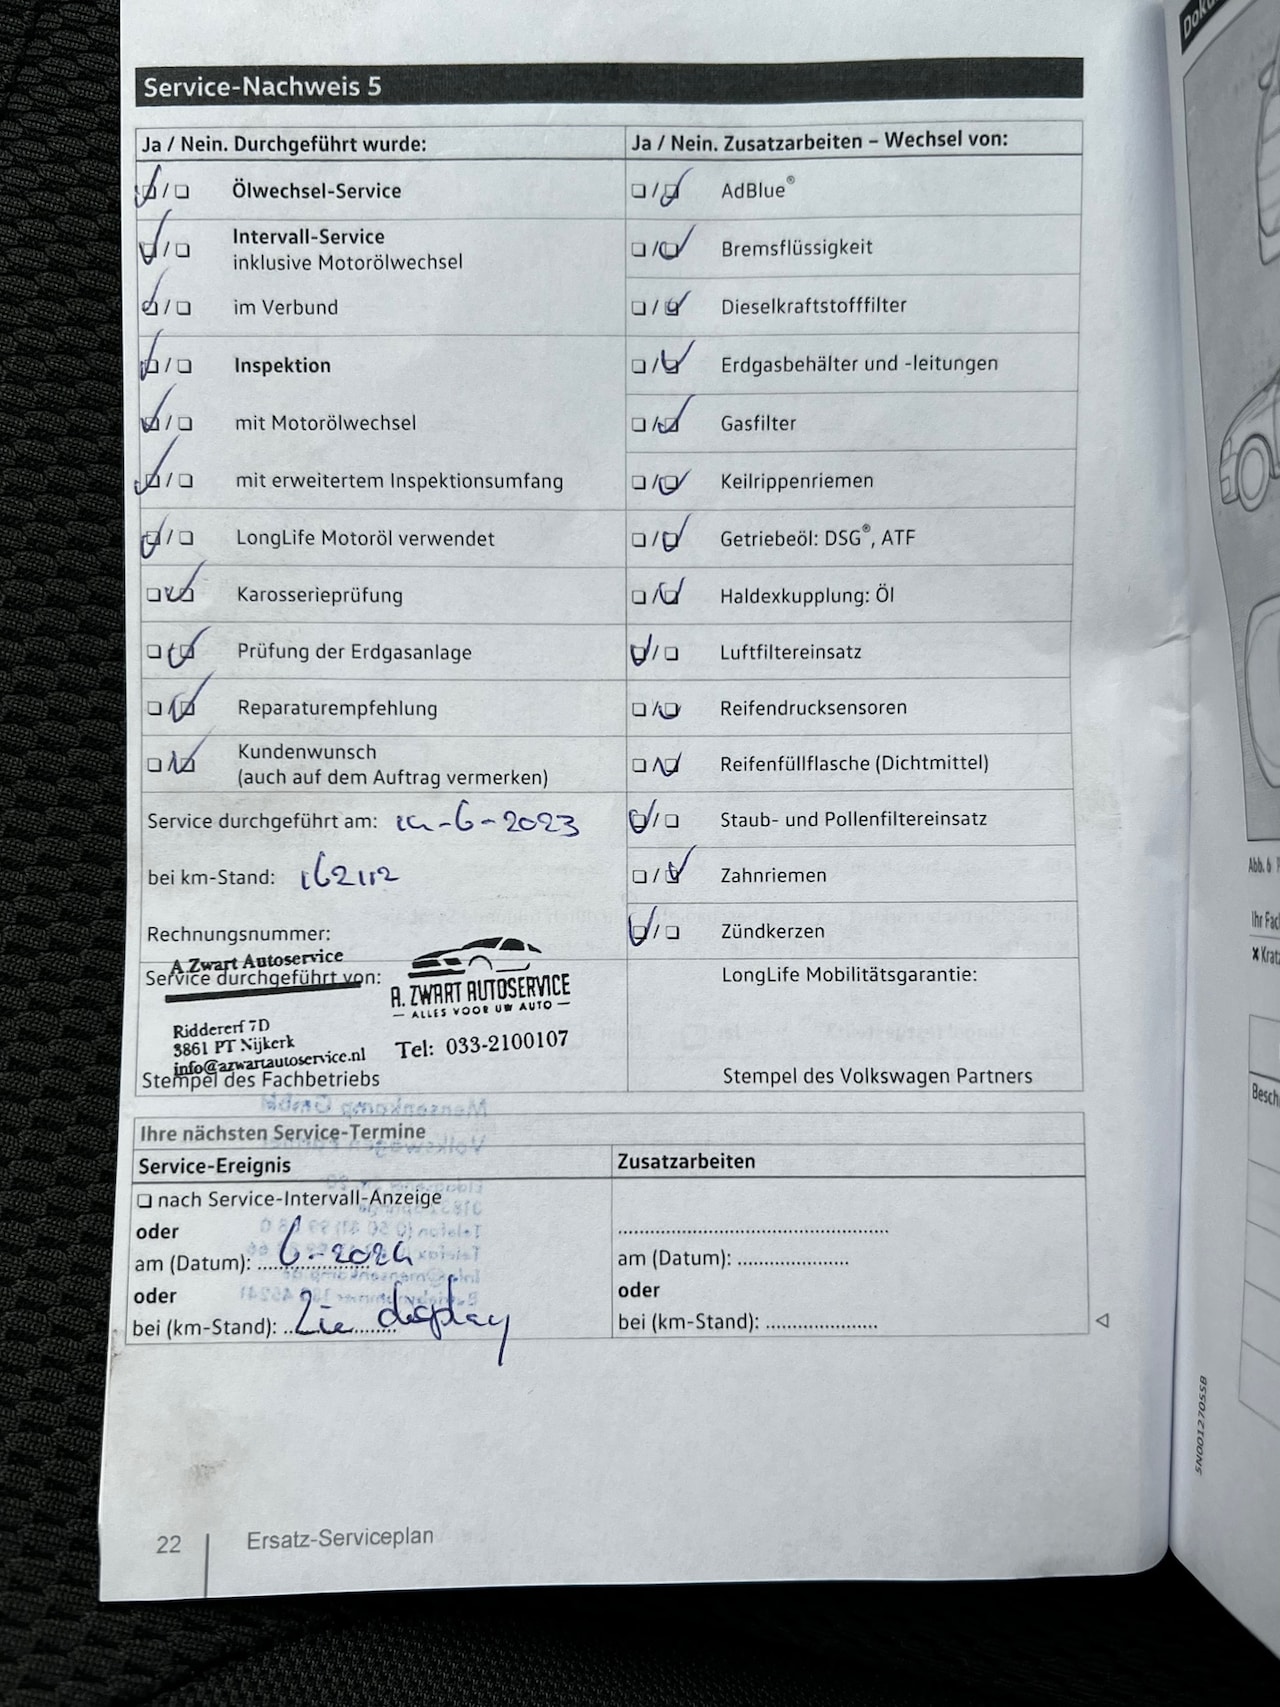 Service-Nachweis 5
Ja / Nein. Durchgeführt wurde:
Ölwechsel-Service
Intervall-Service
inklusive Motorölwechsel
im Verbund
Inspektion
mit Motorölwechsel
mit erweitertem Inspektionsumfang
LongLife Motoröl verwendet
Karosserieprüfung
Prüfung der Erdgasanlage
Reparaturempfehlung
Kundenwunsch
(auch auf dem Auftrag vermerken)
Service durchgeführt am: -6-2023
bei km-Stand: 162112
Rechnungsnummer:
A Zwart Autoservice
Service durchgeführt von:
A. ZWART AUTOSERVICE
— ALLES VOOR UW AUTO —
Riddererf 7D
3861 PT Nijkerk
info@azwartautoservice.nl
Tel: 033-2100107
Stempel des Fachbetriebs
Ja / Nein. Zusatzarbeiten – Wechsel von:
AdBlue®
Bremsflüssigkeit
Dieselkraftstofffilter
Erdgasbehälter und -leitungen
Gasfilter
Keilrippenriemen
Getriebeöl: DSG®, ATF
Haldexkupplung: Öl
Luftfiltereinsatz
Reifendrucksensoren
Reifenfüllflasche (Dichtmittel)
Staub- und Pollenfiltereinsatz
Zahnriemen
Zündkerzen
LongLife Mobilitätsgarantie:
Stempel des Volkswagen Partners
Ihre nächsten Service-Termine
Service-Ereignis
nach Service-Intervall-Anzeige
oder
am (Datum): 6-2024
oder
bei (km-Stand): Zie display
Zusatzarbeiten
am (Datum):
oder
bei (km-Stand):
22
Ersatz-Serviceplan
5N0012705SB
Abb. 6
Ihr Fac
Krat
Besch
Doku